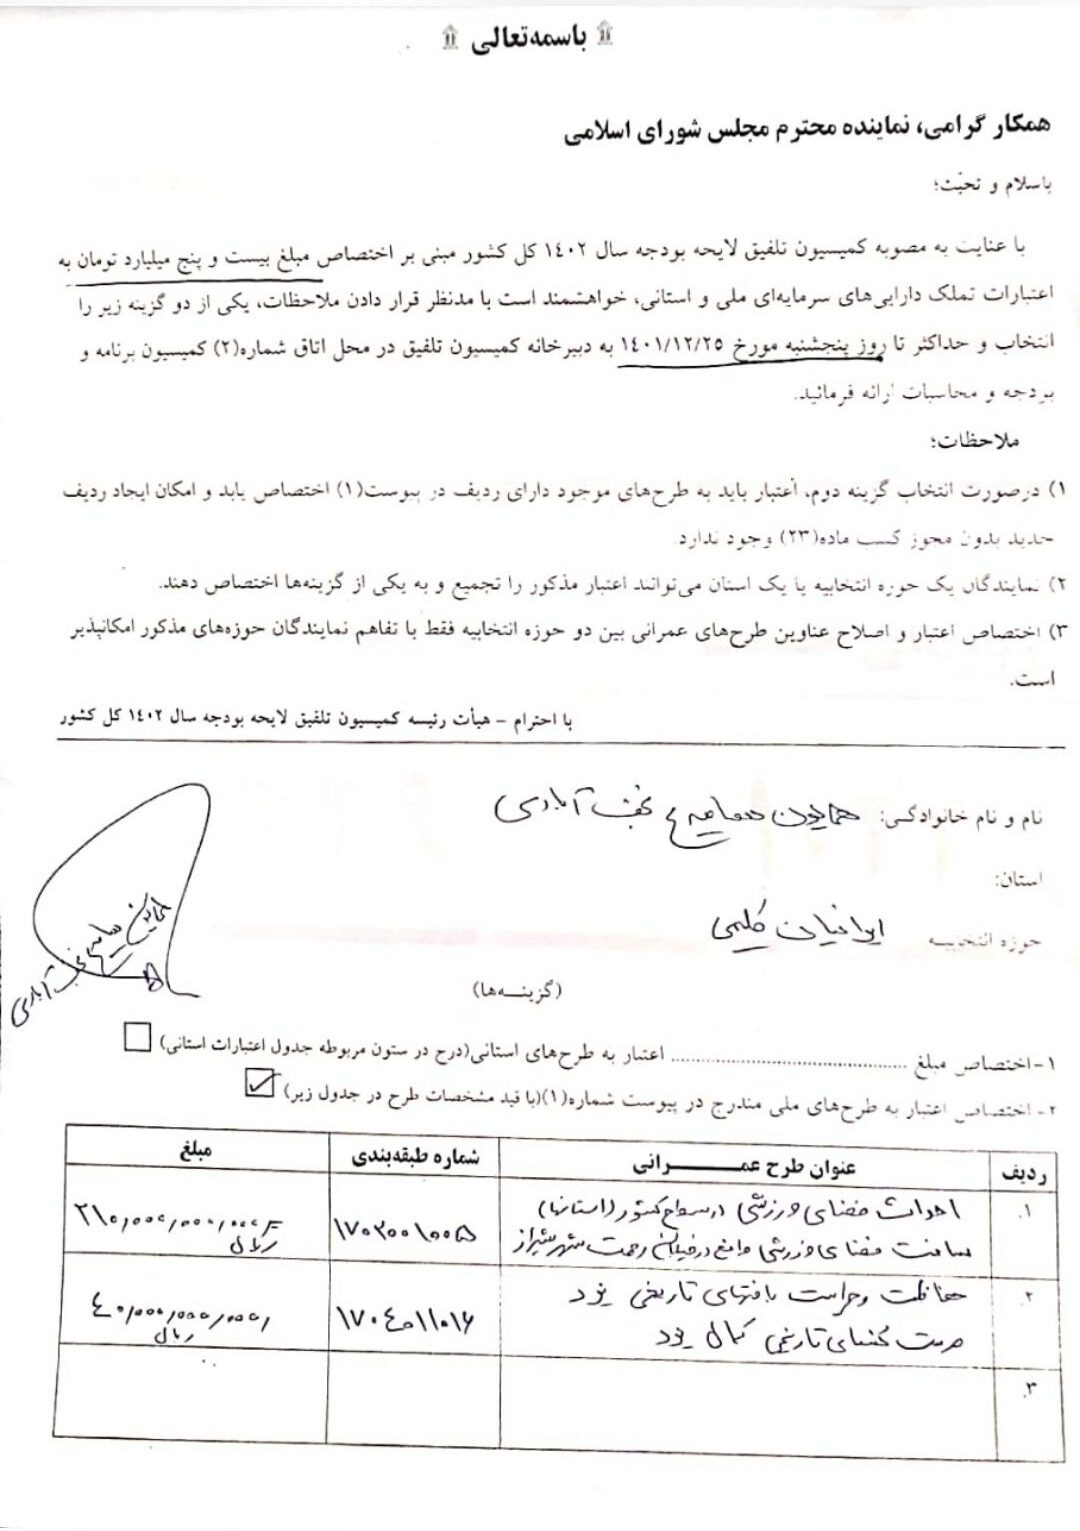 باسمه‌تعالی
همکار گرامی، نماینده محترم مجلس شورای اسلامی
باسلام و تحیّت؛
با عنایت به مصوبه کمیسیون تلفیق لایحه بودجه سال ۱۴۰۲ کل کشور مبنی بر اختصاص مبلغ بیست و پنج میلیارد تومان به
اعتبارات تملک دارایی‌های سرمایه‌ای ملی و استانی، خواهشمند است با مدنظر قرار دادن ملاحظات، یکی از دو گزینه زیر را
انتخاب و حداکثر تا روز پنجشنبه مورخ ۱۴۰۱/۱۲/۲۵ به دبیرخانه کمیسیون تلفیق در محل اتاق شماره(۲) کمیسیون برنامه و
بودجه و محاسبات ارائه فرمائید.
ملاحظات؛
۱) درصورت انتخاب گزینه دوم، اعتبار باید به طرح‌های موجود دارای ردیف در پیوست(۱) اختصاص یابد و امکان ایجاد ردیف
جدید بدون مجوز کسب ماده(۲۳) وجود ندارد.
۲) نمایندگان یک حوزه انتخابیه یا یک استان می‌توانند اعتبار مذکور را تجمیع و به یکی از گزینه‌ها اختصاص دهند.
۳) اختصاص اعتبار و اصلاح عناوین طرح‌های عمرانی بین دو حوزه انتخابیه فقط با تفاهم نمایندگان حوزه‌های مذکور امکانپذیر
است.
با احترام - هیأت رئیسه کمیسیون تلفیق لایحه بودجه سال ۱۴۰۲ کل کشور
نام و نام خانوادگی: همایون سامیه ح نجف آبادی
استان:
حوزه انتخابیه ایرانیان کلیمی
همایون سامیح نجف آبادی
(گزینه‌ها)
۱-اختصاص مبلغ .......................................... اعتبار به طرح‌های استانی(درج در ستون مربوطه جدول اعتبارات استانی)
۲- اختصاص اعتبار به طرح‌های ملی مندرج در پیوست شماره(۱)(با قید مشخصات طرح در جدول زیر)
ردیف عنوان طرح عمرانی شماره طبقه‌بندی مبلغ
۱. احداث فضای ورزشی در سطح کشور (استانها)
ساخت فضای ورزشی واقع در خیابان رحمت شهر شیراز ۱۷۰۳۰۰۱۰۰۵ ۲۱۰,۰۰۰,۰۰۰,۰۰۰ ریال
۲. حفاظت و حراست بافتهای تاریخی یزد
مرمت تاریخی یزد ۱۷۰۴۰۱۱۰۱۶ ۴۰,۰۰۰,۰۰۰,۰۰۰ ریال
۳.